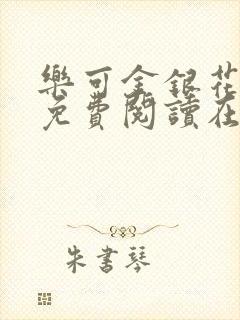 樂可金銀花
免費閱讀在
朱書琴